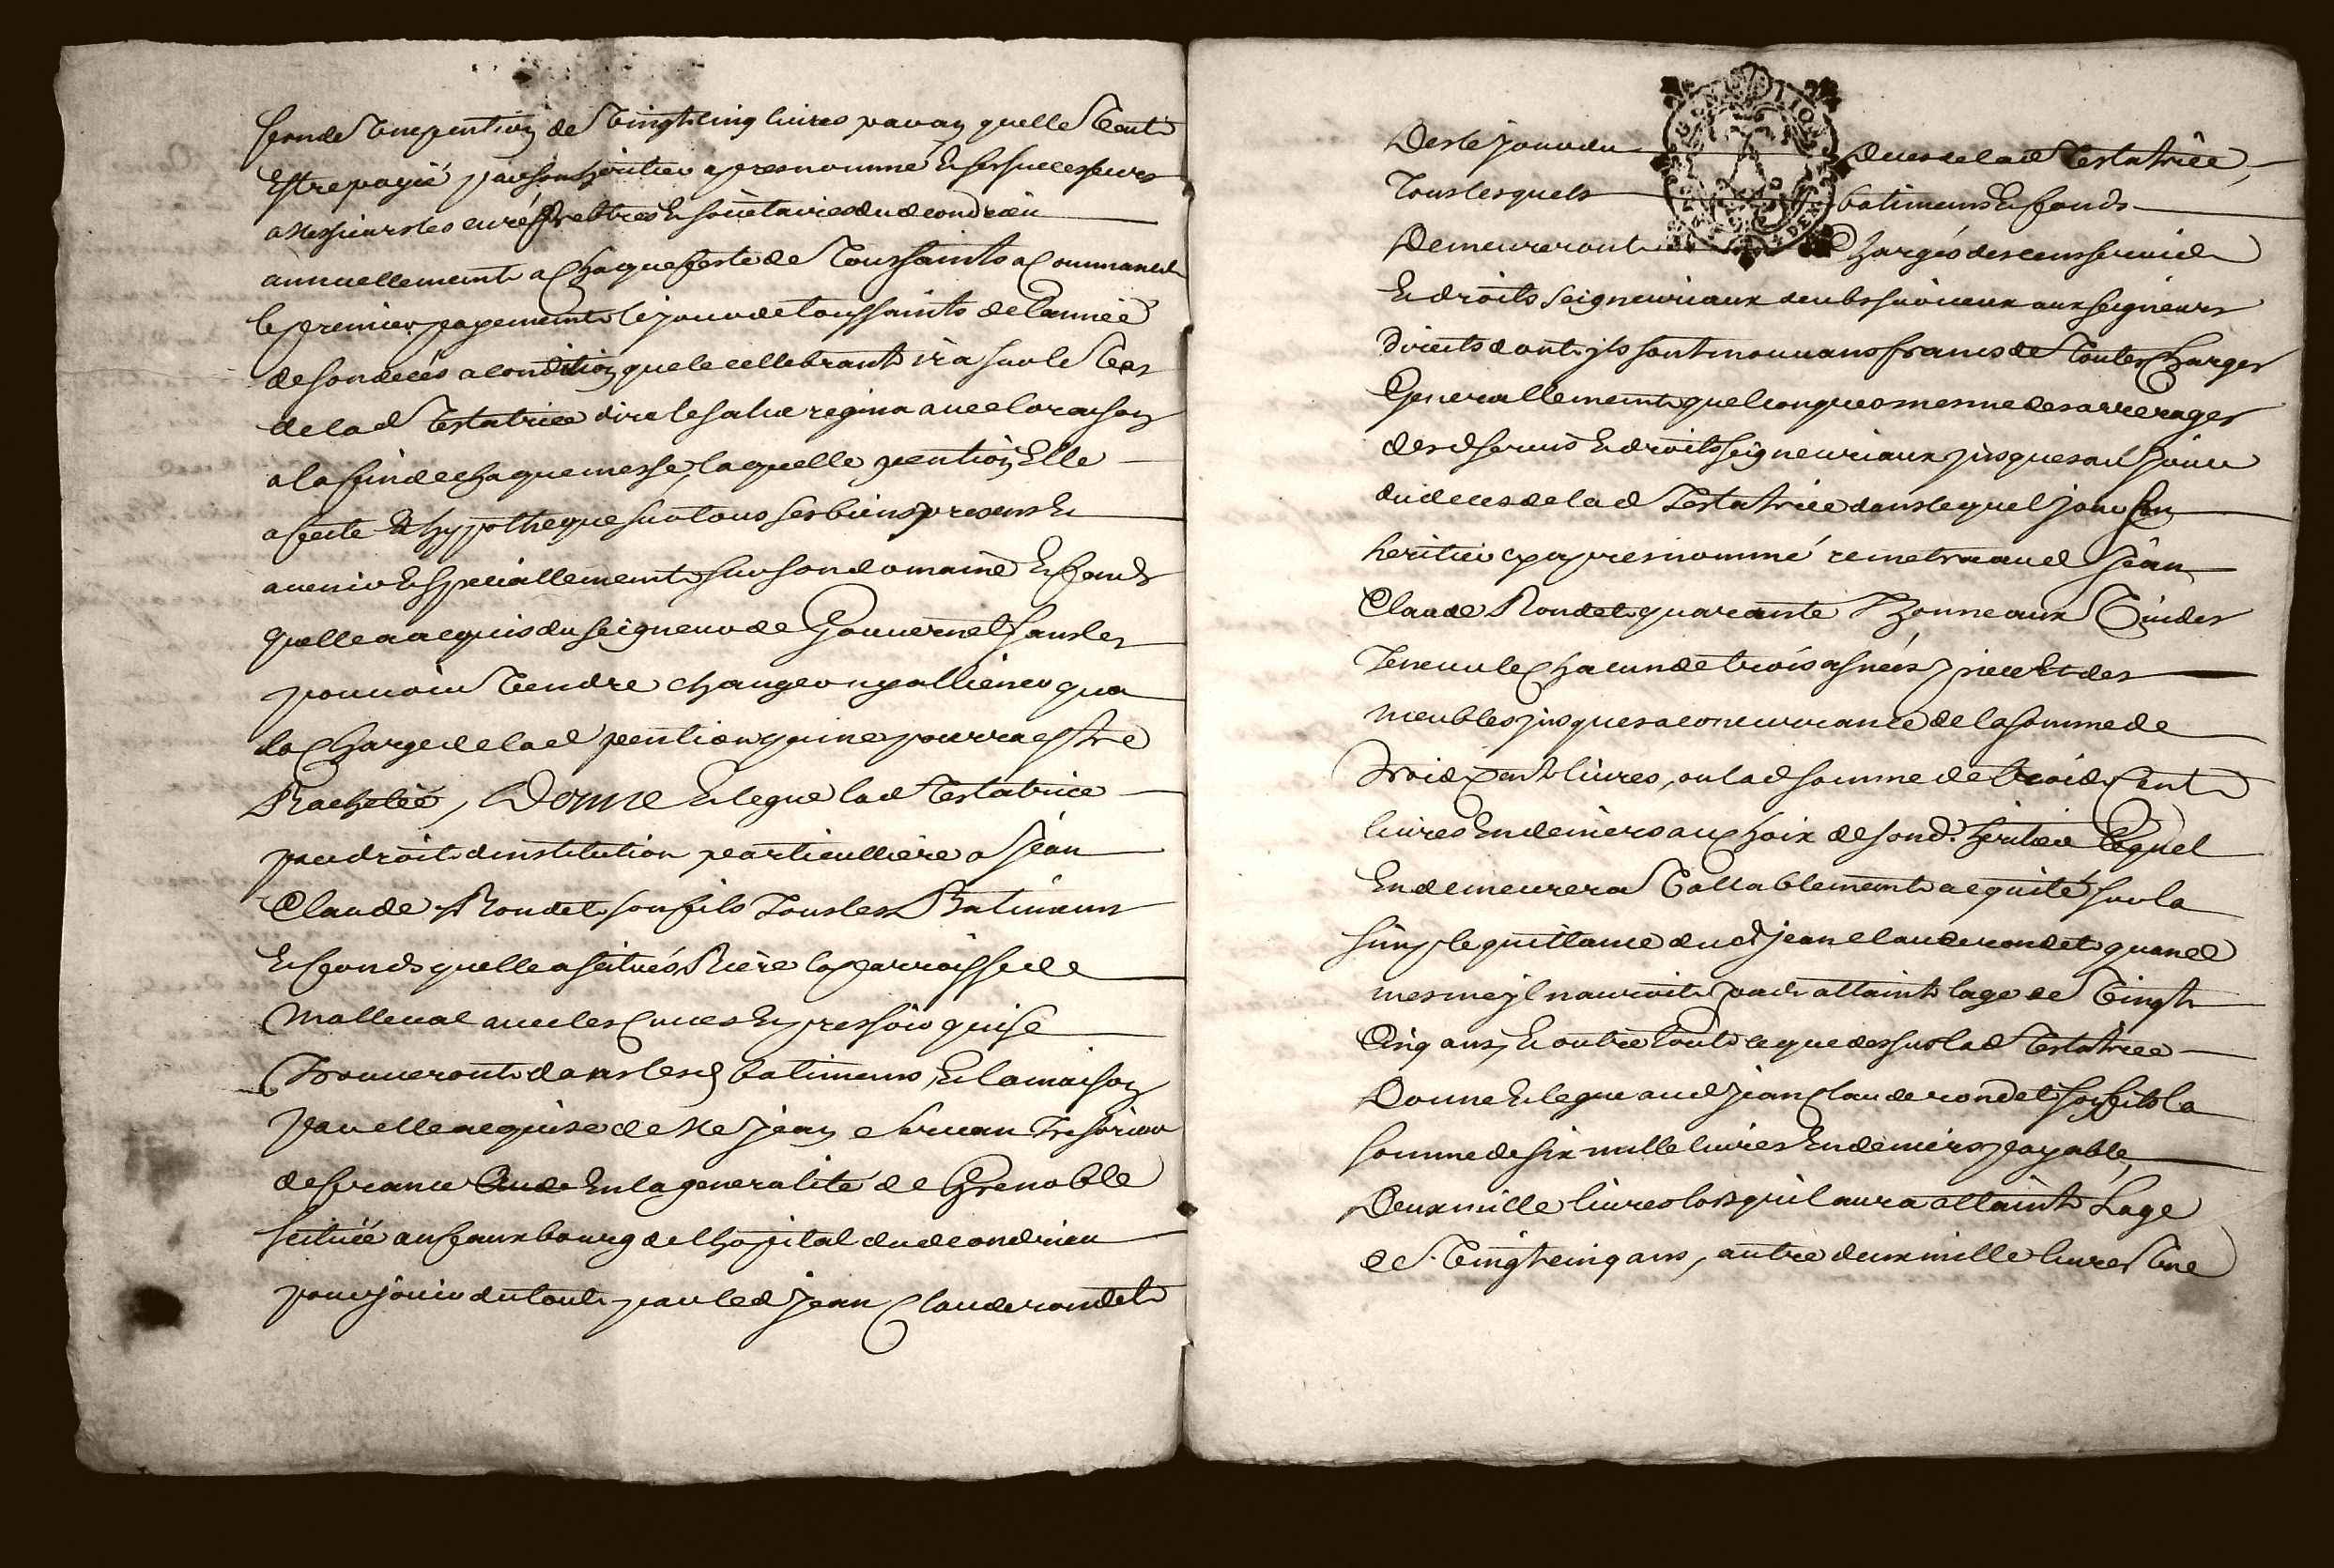 fonde une pention de vingt cinq livres par an quelle veut
estre payié par son heritier apres nommé et ses successeurs
a messieurs les curé prebtres et sociétaires dud condrieu
annuellement a chaque feste de Toussaints a commancer
le premier payement le jour de toussaints de lannée
de son deces a condition que le cellebrant ira sur le vas
de lad Testatrice dire le salve regina avec loraison
a la fin de chaque messe, laquelle pention Elle
afecte et hypotheque sur tous ses biens presens et
avenir et speciallement sur son domaine et fonds
quelle a acquis du seigneur de Gouvernet sans les
pouvoir vendre changer ny alliener qua
la charge de lad pention qui ne pourra estre
Rachetée, Donne et legue lad Testatrice
par droit dinstitution particulliere a Jean
Claude Rondet son fils Tous les Batimens
et fonds quelle a scitués Riere la parroisse de
Malleval avec les cuves et pressoir qui se
Trouveront dans lesd batimens, et la maison
par elle acquise de Me Jean servan Tresorier
de france en la generalité de Grenoble
scituée au fauxbourg de lhopital dud condrieu
pour jouir du tout par led Jean Claude rondet
Des le jour du deces de lad Testatrice,
Tous lesquels batimens et fonds
Demeureront Chargés des cens servide
et droits seigneuriaux deubs envers aux seigneurs
Directs dont jls sont mouvans francs de Toutes Charges
Generallement quelconques mesme des arrerages
desd servis et droits seigneuriaux jusques au jour
du deces de lad Testatrice dans lequel jour son
heritier cy apres nommé remetra aud Jean
Claude Rondet quarante Thonneaux Vuides
Teneur le chacun de trois asnées piece et des
meubles jusques a concurrance de la somme de
Trois Cent livres, ou lad somme de trois Cent
livres En deniers au choix de sond. heritier lequel
En demeurera Vallablement acquité sur la
simple quittance dud jean claude rondet quand
mesme jl nauroit pas attaint lage de Vingt
Cinq ans, Et outre tout ce que dessus lad Testatrice
Donne et legue aud jean Claude rondet son fils la
somme de six mille livres En deniers payable,
Deux mille livres lors quil aura attaint Lage
de Vingt cinq ans, autre deux mille livres Une